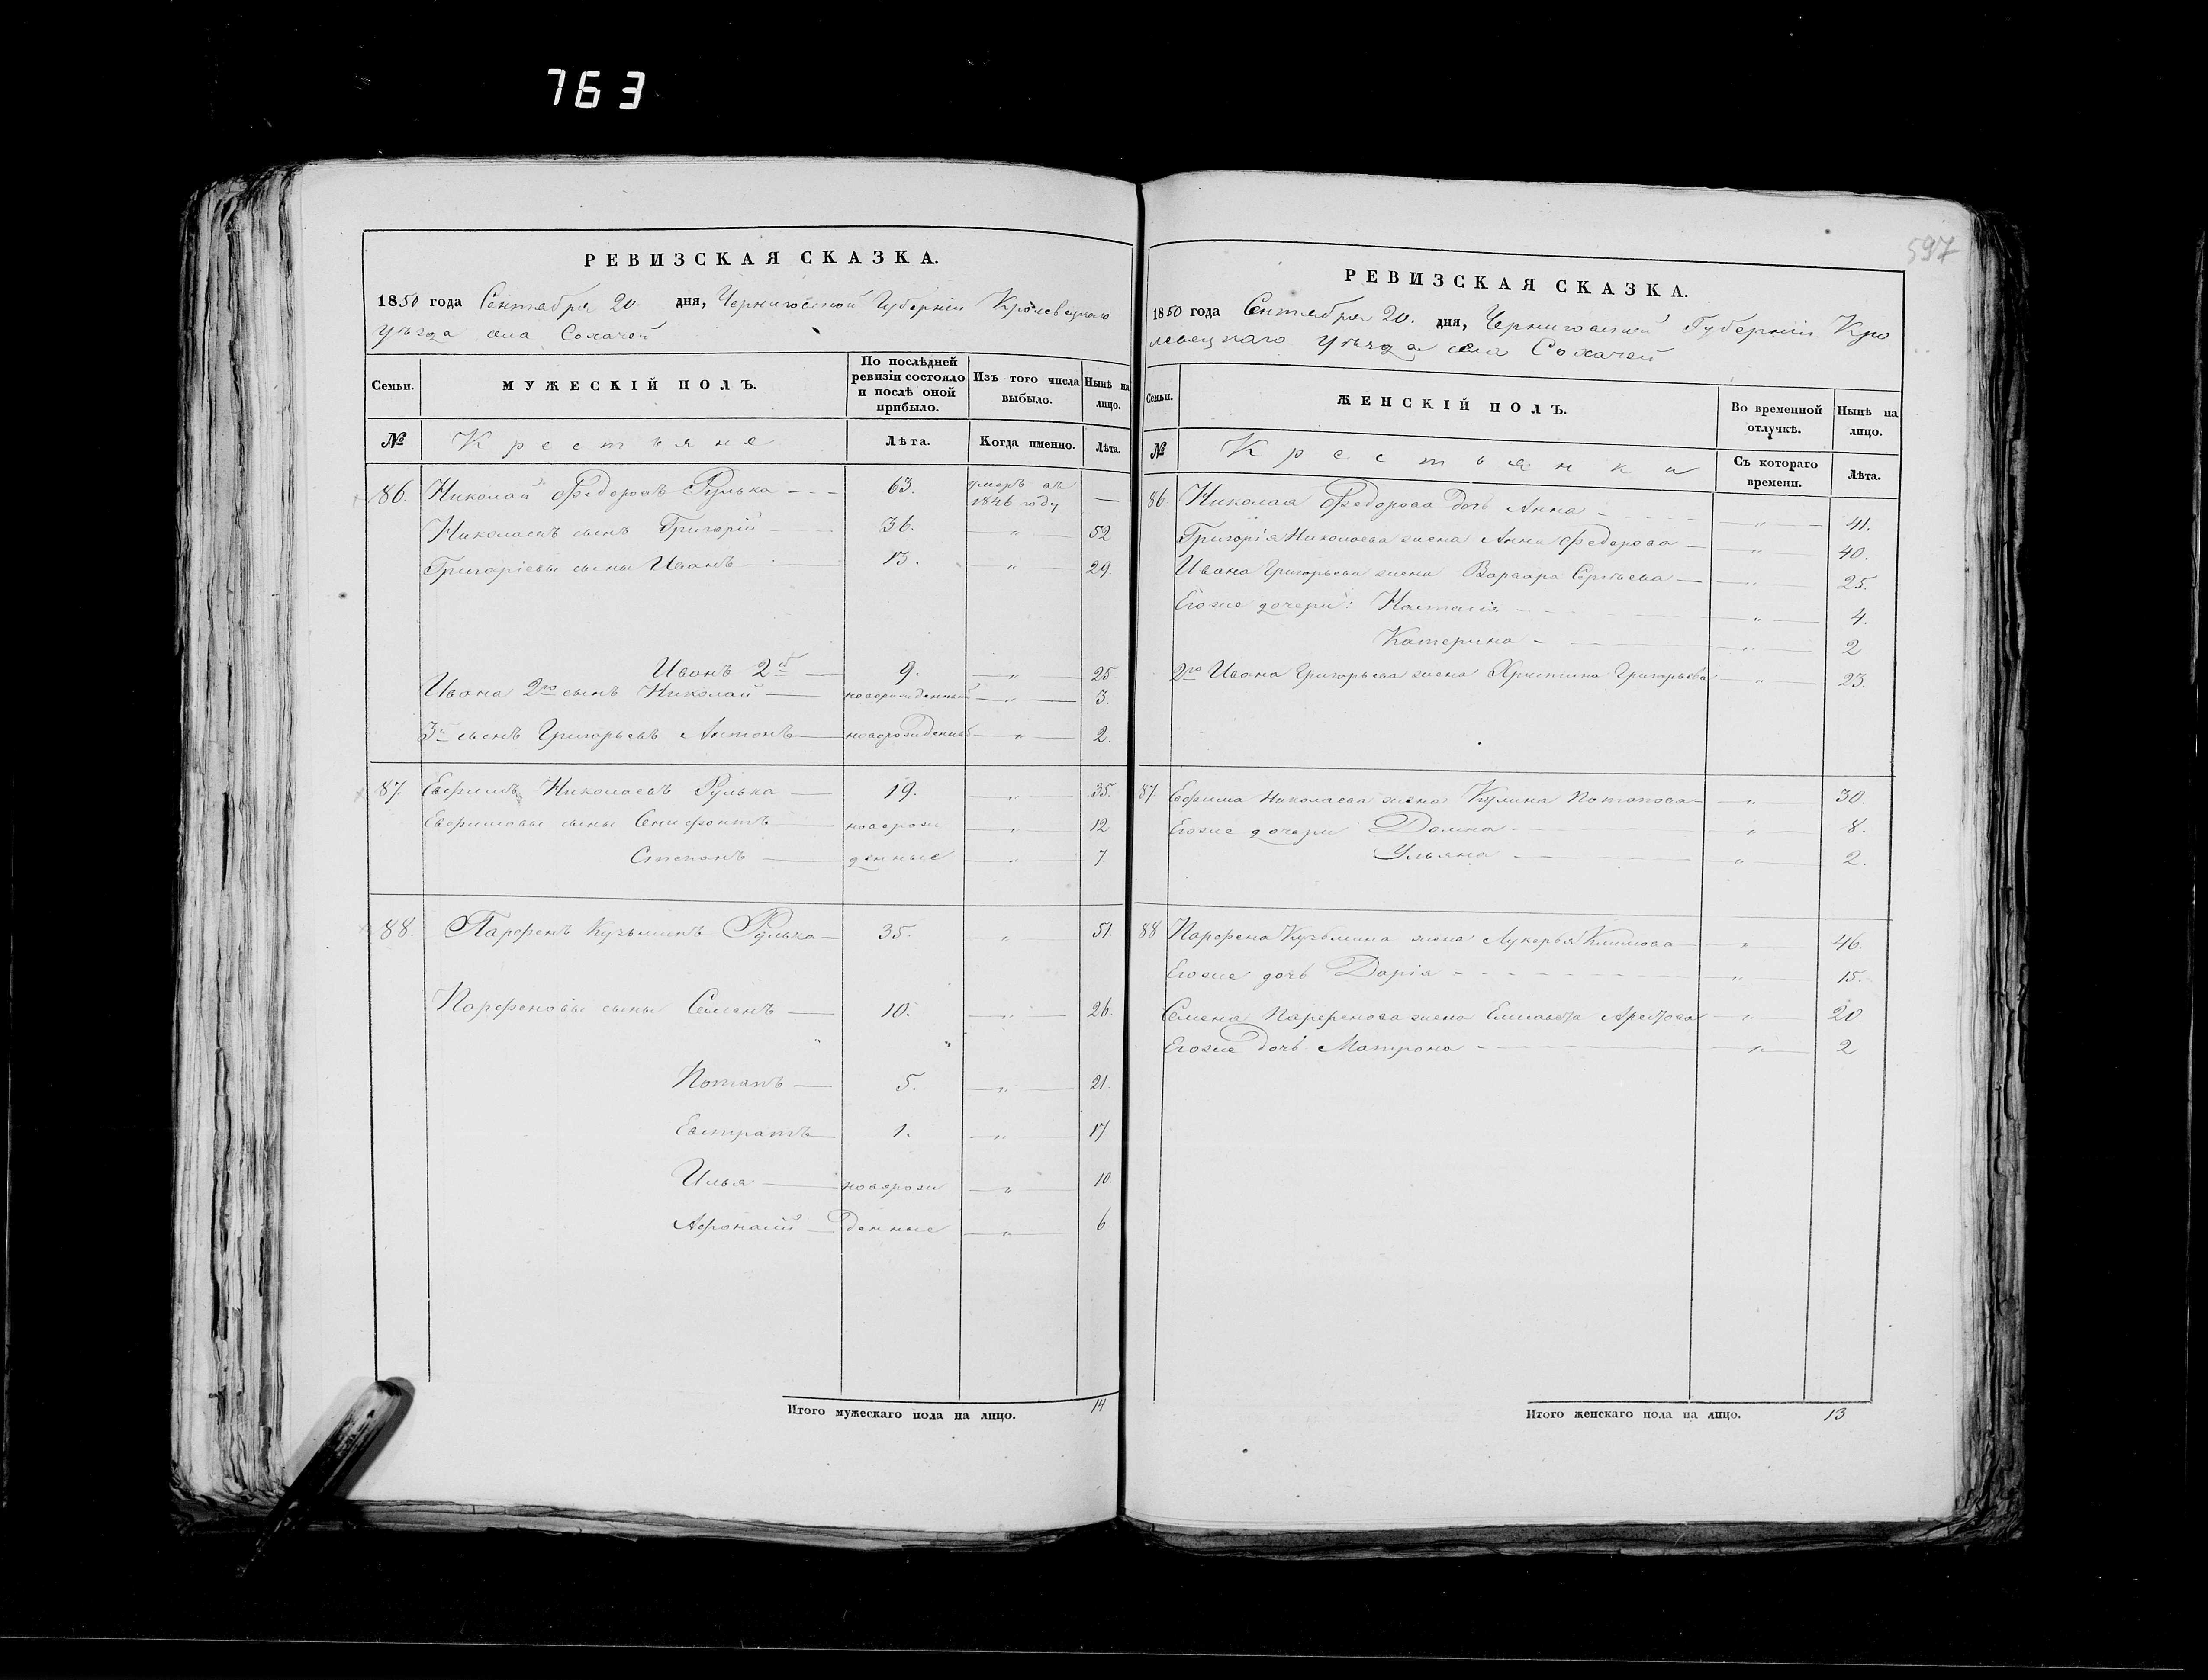 763
597
РЕВИЗСКАЯ СКАЗКА.
1850 года Сентября 20. дня, Черниговской Губерніи Кролевецкаго
уѣзда села Сохачей
Семьи. МУЖЕСКІЙ ПОЛЪ. По послѣдней ревизіи состояло и послѣ оной прибыло. Изъ того числа выбыло. Нынѣ на лицо.
№ Крестьяне Лѣта. Когда именно. Лѣта.
86. Николай Федоровъ Рулька 63. умеръ въ 1846 году —
Николаевъ сынъ Григорій 36. " 52
Григоріевы сыны Иванъ 13. " 29.
Иванъ 2й 9. " 25.
Ивана 2го сынъ Николай новорожденный " 3.
3й сынъ Григорьевъ Антонъ новорожденный " 2.
87. Евфимъ Николаевъ Рулька 19. " 35.
Евфимовы сыны Ксенофонтъ новорож " 12
Степанъ денные " 7.
88. Парфенъ Кузьминъ Рулька 35. " 51.
Парфеновы сыны Семенъ 10. " 26.
Потапъ 5. " 21.
Евстратъ 1. " 17
Илья новорож " 10.
Афонасій денные " 6
Итого мужескаго пола на лицо. 14
РЕВИЗСКАЯ СКАЗКА.
1850 года Сентября 20. дня, Черниговской Губерніи Кро
левецкаго уѣзда села Сохачей
Семьи. ЖЕНСКІЙ ПОЛЪ. Во временной отлучкѣ. Нынѣ на лицо.
№ Крестьянки Съ котораго времени. Лѣта.
86. Николая Федорова дочь Анна " 41.
Григорія Николаева жена Анна Федорова " 40.
Ивана Григорьева жена Варвара Сергѣева " 25.
Егоже дочери: Настасія " 4.
Катерина " 2
2го Ивана Григорьева жена Христина Григорьева " 23.
87. Евфима Николаева жена Кулина Потапова " 30.
Егоже дочери Домна " 8.
Ульяна " 2.
88 Парфена Кузьмина жена Лукерья Климова " 46.
Егоже дочь Дарія " 15.
Семена Парфенова жена Елисавета " 20
Егоже дочь Матрона " 2
Итого женскаго пола на лицо. 13